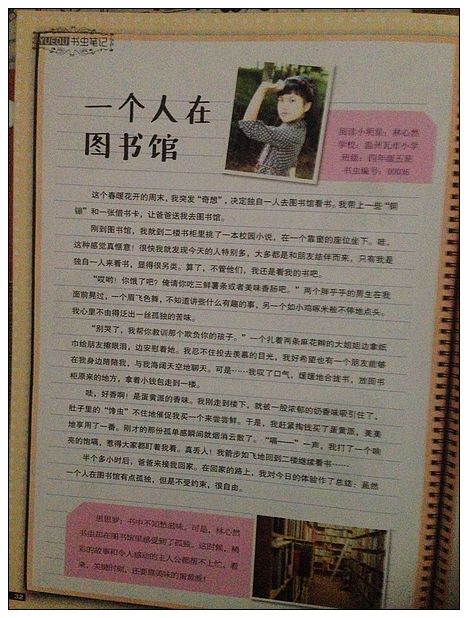 YUEDU 书虫笔记
一个人在
图书馆
阅读小明星：林心然
学校：温州瓦市小学
班级：四年级五班
书虫编号：00036
这个春暖花开的周末，我突发“奇想”，决定独自一人去图书馆看书。我带上一些“铜
锢”和一张借书卡，让爸爸送我去图书馆。
刚到图书馆，我就到二楼书柜里挑了一本校园小说，在一个靠窗的座位坐下。哇，
这种感觉真惬意！很快我就发现今天的人特别多，大多都是和朋友结伴而来，只有我是
独自一人来看书，显得很另类。算了，不管他们，我还是看我的书吧。
“哎哟！你饿了吧？俺请你吃三鲜薯条或者美味香肠吧。”两个胖乎乎的男生在我
面前晃过，一个眉飞色舞，不知道讲些什么有趣的事，另一个如小鸡啄米般不停地点头。
我心里不由得泛出一丝孤独的苦味。
“别哭了，我帮你教训那个欺负你的孩子。”一个扎着两条麻花辫的大姐姐边拿纸
巾给朋友擦眼泪，边安慰着她。我忍不住投去羡慕的目光，我好希望也有一个朋友能够
在我身边陪陪我，与我海阔天空地聊天。可是……我叹了口气，缓缓地合拢书，放回书
柜原来的地方，拿着小钱包走到一楼。
哇，好香啊！是蛋黄派的香味。我刚走到楼下，就被一股浓郁的奶香味吸引住了，
肚子里的“馋虫”不住地催促我买一个来尝尝鲜。于是，我赶紧掏钱买了蛋黄派，美美
地享用了一番。刚才的那份孤单感瞬间就烟消云散了。“嗝——”一声，我打了一个响
亮的饱嗝，惹得大家都盯着我看。真丢人！我箭步如飞地回到二楼继续看书……
半个多小时后，爸爸来接我回家。在回家的路上，我对今日的体验作了总结：虽然
一个人在图书馆有点孤独，但是不受约束，很自由。
思思罗：书中不知愁滋味。可是，林心然
书虫却在图书馆里感受到了孤独。这时候，精
彩的故事和令人感动的主人公都帮不上忙。看
来，关键时刻，还要靠美味的蛋黄派！
32